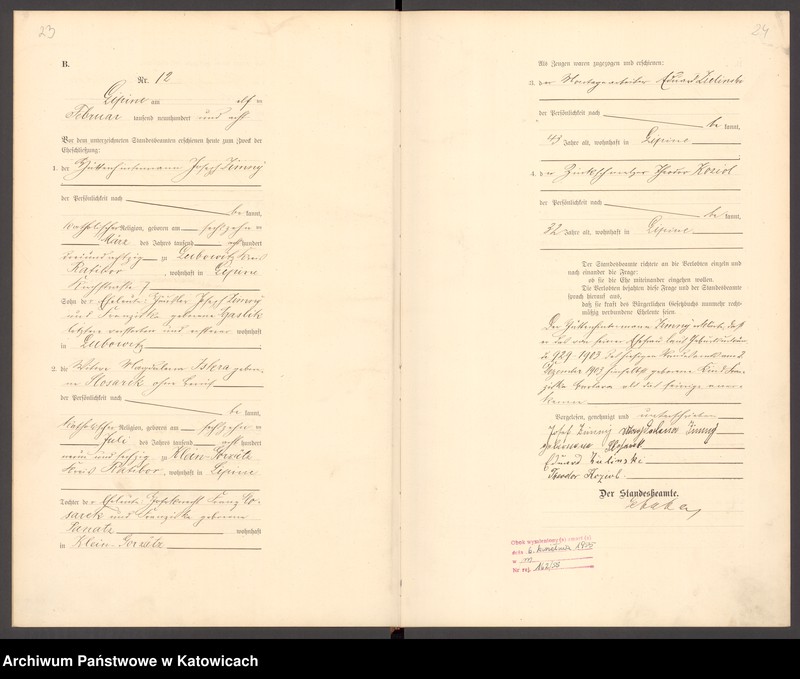 23
B.
Nr. 12
Lipine am elf ten
Februar tausend neunhundert und acht
Vor dem unterzeichneten Standesbeamten erschienen heute zum Zweck der
Eheschließung:
1. der Hüttenhutmann Joseph Zimny
der Persönlichkeit nach
be kannt,
katholischer Religion, geboren am sechzehn ten
März des Jahres tausend acht hundert
zu Lubowitz Kreis
Ratibor, wohnhaft in Lipine
Kirchstraße 7
Sohn der Eheleute Häusler Josef Zimny
und Franziska geborene
letztere verstorben und ersterer wohnhaft
in Lubowitz
2. die Witwe Magdalena Iskra gebore-
ne Kosarek ohne Beruf
der Persönlichkeit nach
be kannt,
katholischer Religion, geboren am sechzehn ten
Juli des Jahres tausend acht hundert
neun und sechzig zu Klein Gorzütz
Kreis Ratibor, wohnhaft in Lipine
Tochter der Eheleute Franz Ko-
sarek und Franziska geborene
wohnhaft
in Klein-Gorzütz
24
Als Zeugen waren zugezogen und erschienen:
3. der Montagearbeiter Eduard Zielinski
der Persönlichkeit nach
be kannt,
43 Jahre alt, wohnhaft in Lipine
4. der Zinkschmelzer Theodor Koziol
der Persönlichkeit nach
be kannt,
32 Jahre alt, wohnhaft in Lipine
Der Standesbeamte richtete an die Verlobten einzeln und
nach einander die Frage:
ob sie die Ehe miteinander eingehen wollen.
Die Verlobten bejahten diese Frage und der Standesbeamte
sprach hierauf aus,
daß sie kraft des Bürgerlichen Gesetzbuchs nunmehr recht-
mäßig verbundene Eheleute seien.
Der Hüttenhutmann Zimny erklärt, daß
er das von seiner Ehefrau laut Geburtsurkunde
№ 929 1903 des hiesigen Standesamts am 2
Dezember 1903 geborene Kind Fran-
ziska Barbara als das seinige aner-
kenne
Vorgelesen, genehmigt und unterschrieben
Josef Zimny Magdalena Zimny
geborene Kosarek
Eduard Zielinski
Teodor Koziol
Der Standesbeamte.
Obok wypisanego(ej) zmarł(a)
dnia 6. kwietnia
w m
Nr rej. 162/55
Archiwum Państwowe w Katowicach